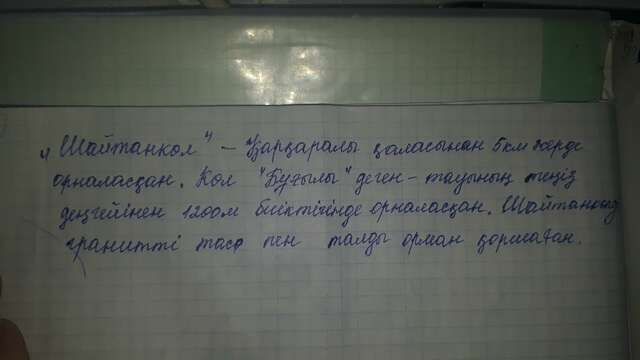 "Шайтанкол" – Қарқаралы қаласынан 5км жерде
орналасқан. Кол "Бұғылы" деген – тауының теңіз
деңгейінен 1200м биіктігінде орналасқан. Шайтанколд
гранитті тасо пен талды орман қоршаған.